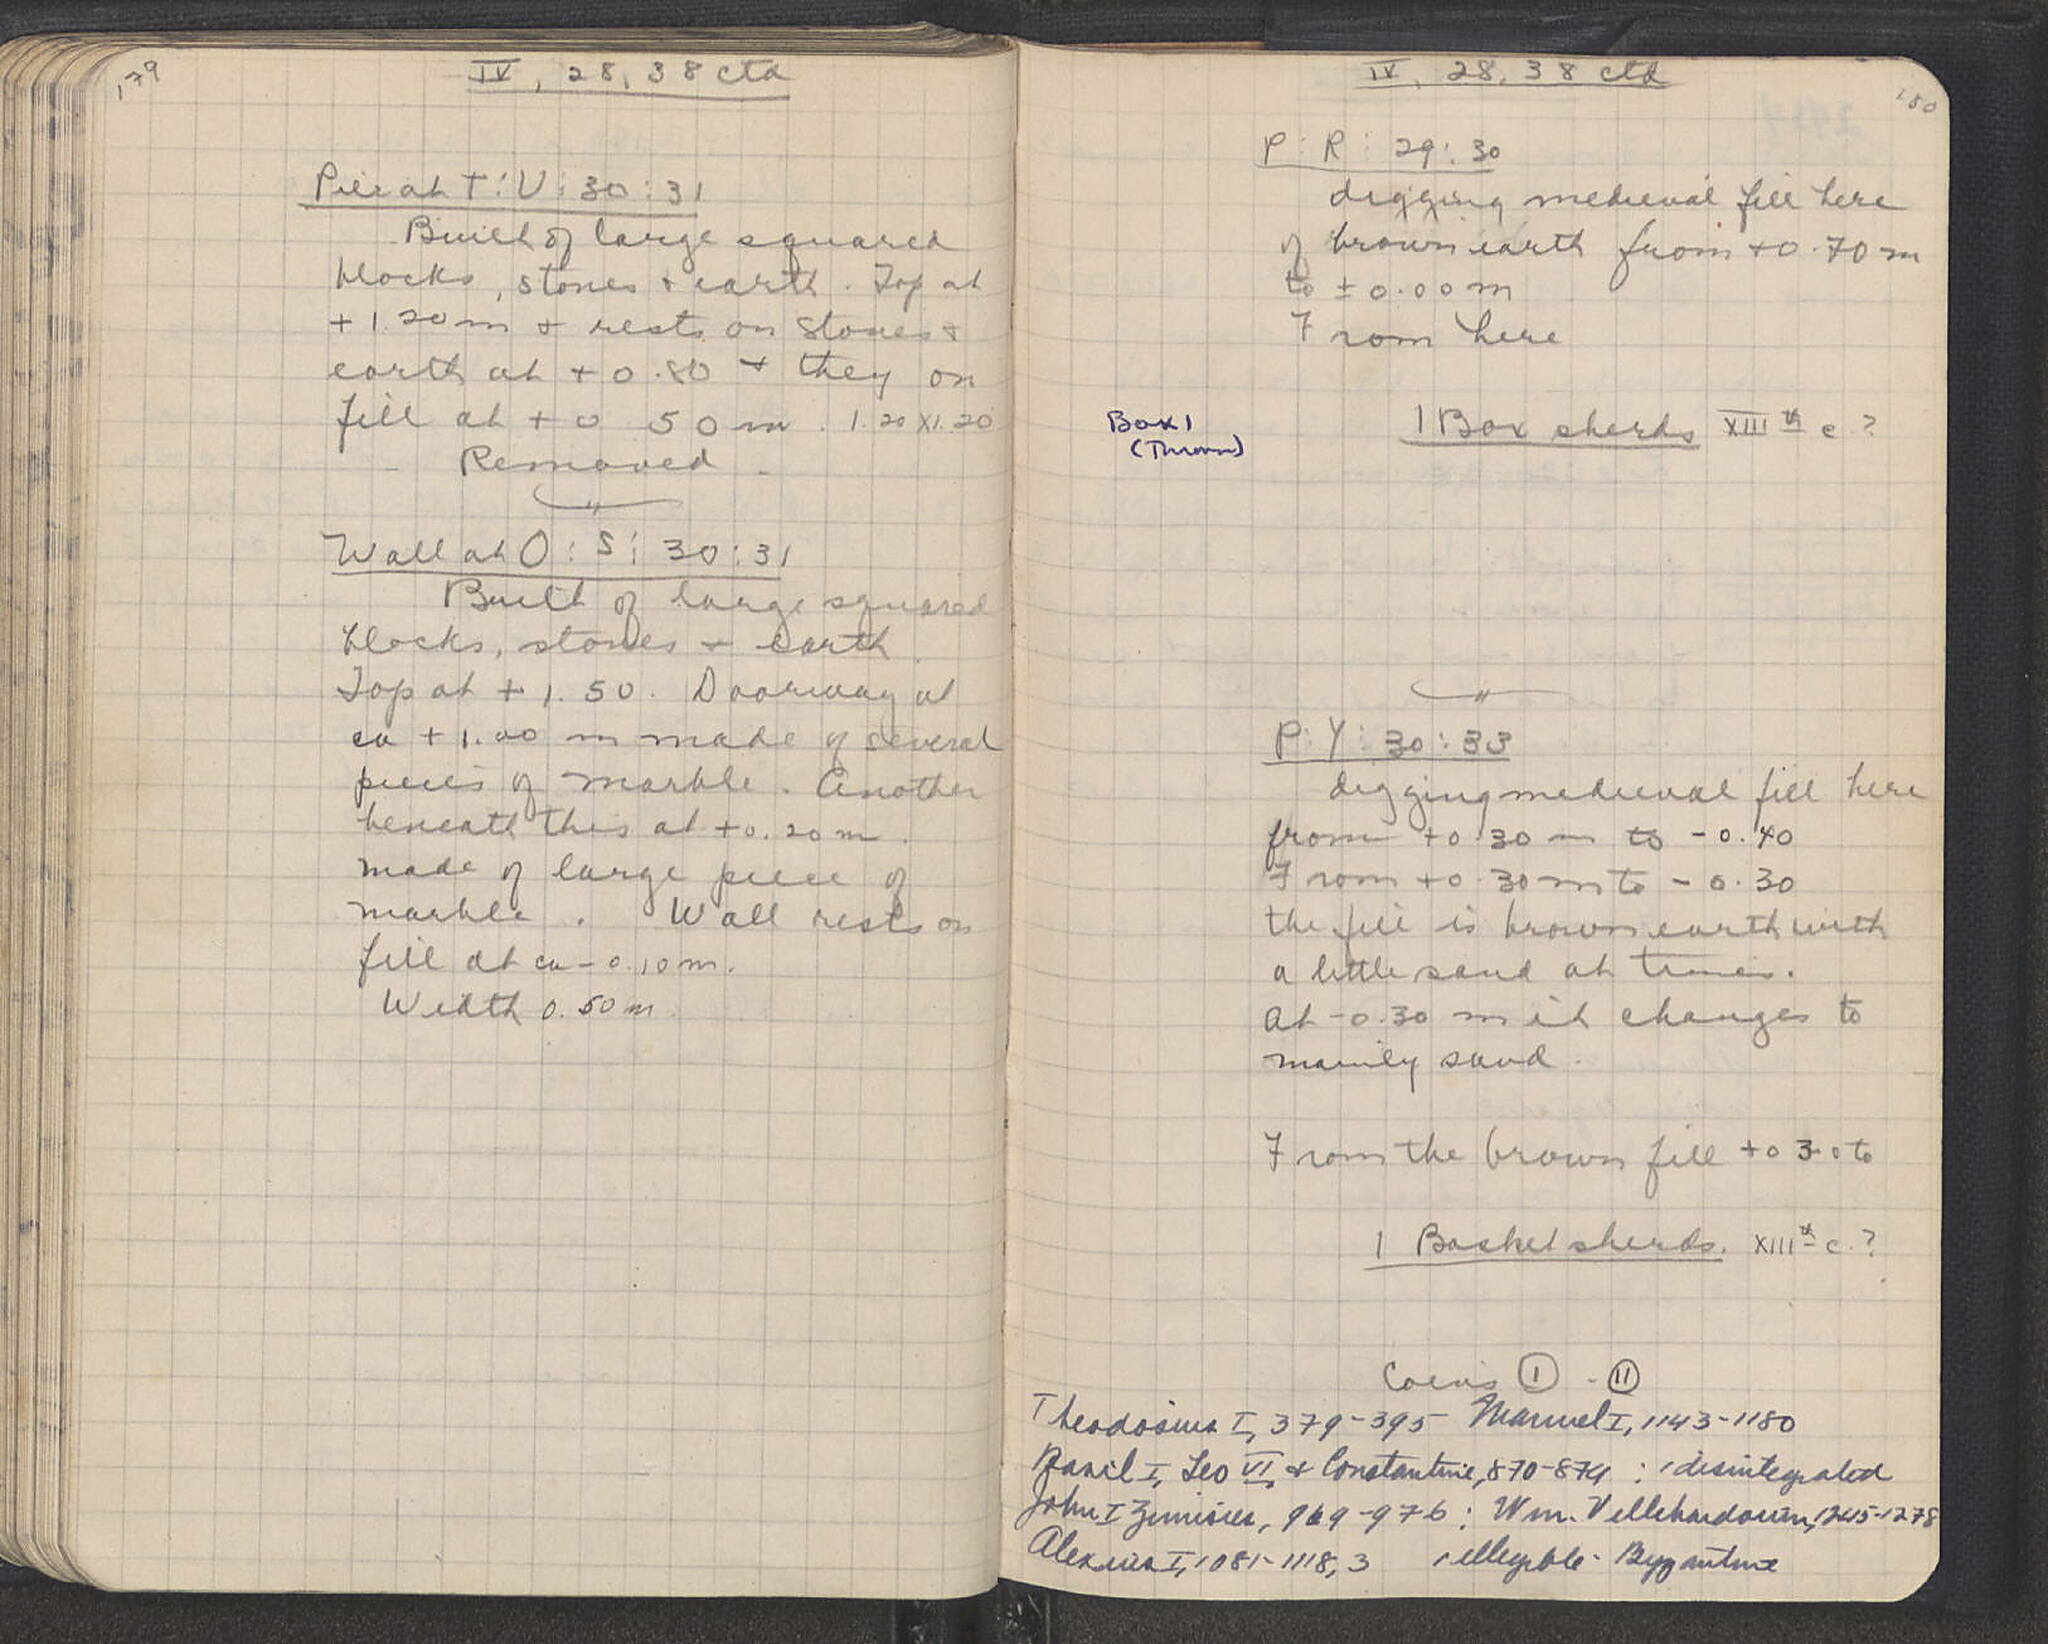 179
IV, 28, 38 ctd
Pier at T:U:30:31
Built of large squared
blocks, stones + earth. Top at
+1.20m + rests on stones +
earth at +0.80 + they on
fill at +0 50m. 1.20 X1.20
Removed.
Wall at O:S:30:31
Built of large squared
blocks, stones + earth
Top at +1.50. Doorway at
ca +1.00 m made of several
pieces of marble. Another
beneath this at +0.20m.
made of large piece of
marble. Wall rests on
fill at ca -0.10m.
Width 0.50m.
IV, 28, 38 ctd
180
P:R:29:30
digging medieval fill here
of brown earth from +0.70m
to ±0.00m
From here
Box 1
(Thrown)
1 Box sherds XIIIth c?
P:Y:30:33
digging medieval fill here
from +0.30m to -0.40
From +0.30m to -0.30
the fill is brown earth with
a little sand at times.
At -0.30 m it changes to
mainly sand.
From the brown fill +0 30 to
1 Basket sherds. XIIIth c.?
Coins 1 - 11
Theodosius I, 379-395 Manuel I, 1143-1180
Basil I, Leo VI, + Constantine, 870-874; 1 disintegrated
John I Zimisces, 969-976; Wm. Villehardouin, 1245-1278
Alexius I, 1081-1118, 3 1 illegible - Byzantine